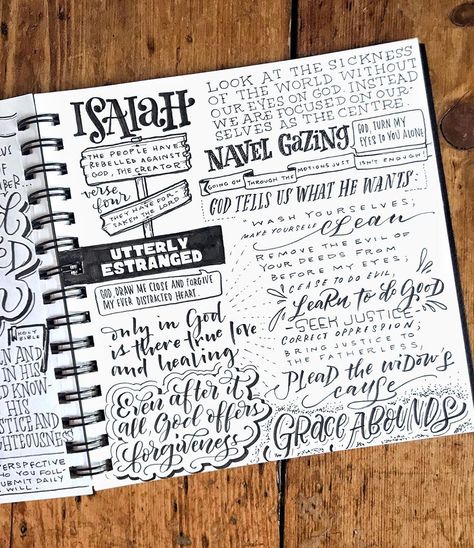 US
OF
MBER...
HOLY
BIBLE
EN AND
IN HIS
D KNOW-
HIS
STICE AND
GHTEOUSNESS
PERSPECTIVE
WHO YOU FOLL-
UBMIT DAILY
WILL.
ISAIAH
THE PEOPLE HAVE
REBELLED AGAINST
GOD, THE CREATOR
verse
four
THEY HAVE FOR-
SAKEN THE LORD
UTTERLY
ESTRANGED
GOD, DRAW ME CLOSE AND FORGIVE
MY EVER DISTRACTED HEART.
only in God
is there true love
and healing
Even after it
all God offers
forgiveness
LOOK AT THE SICKNESS
OF THE WORLD WITHOUT
OUR EYES ON GOD. INSTEAD
WE ARE FOCUSED ON OUR-
SELVES AS THE CENTRE.
NAVEL GAZING
GOD, TURN MY
EYES TO YOU ALONE
GOING THROUGH THE MOTIONS JUST
ISN'T ENOUGH!
GOD TELLS US WHAT HE WANTS:
WASH YOURSELVES;
MAKE YOURSELF clean
REMOVE THE EVIL OF
YOUR DEEDS FROM
BEFORE MY EYES;
CEASE TO DO EVIL,
LEARN TO do GOOD
SEEK JUSTICE
CORRECT OPPRESSION;
BRING JUSTICE TO
THE FATHERLESS,
PLEAD THE WIDOW'S
cause
GRACE ABOUNDS